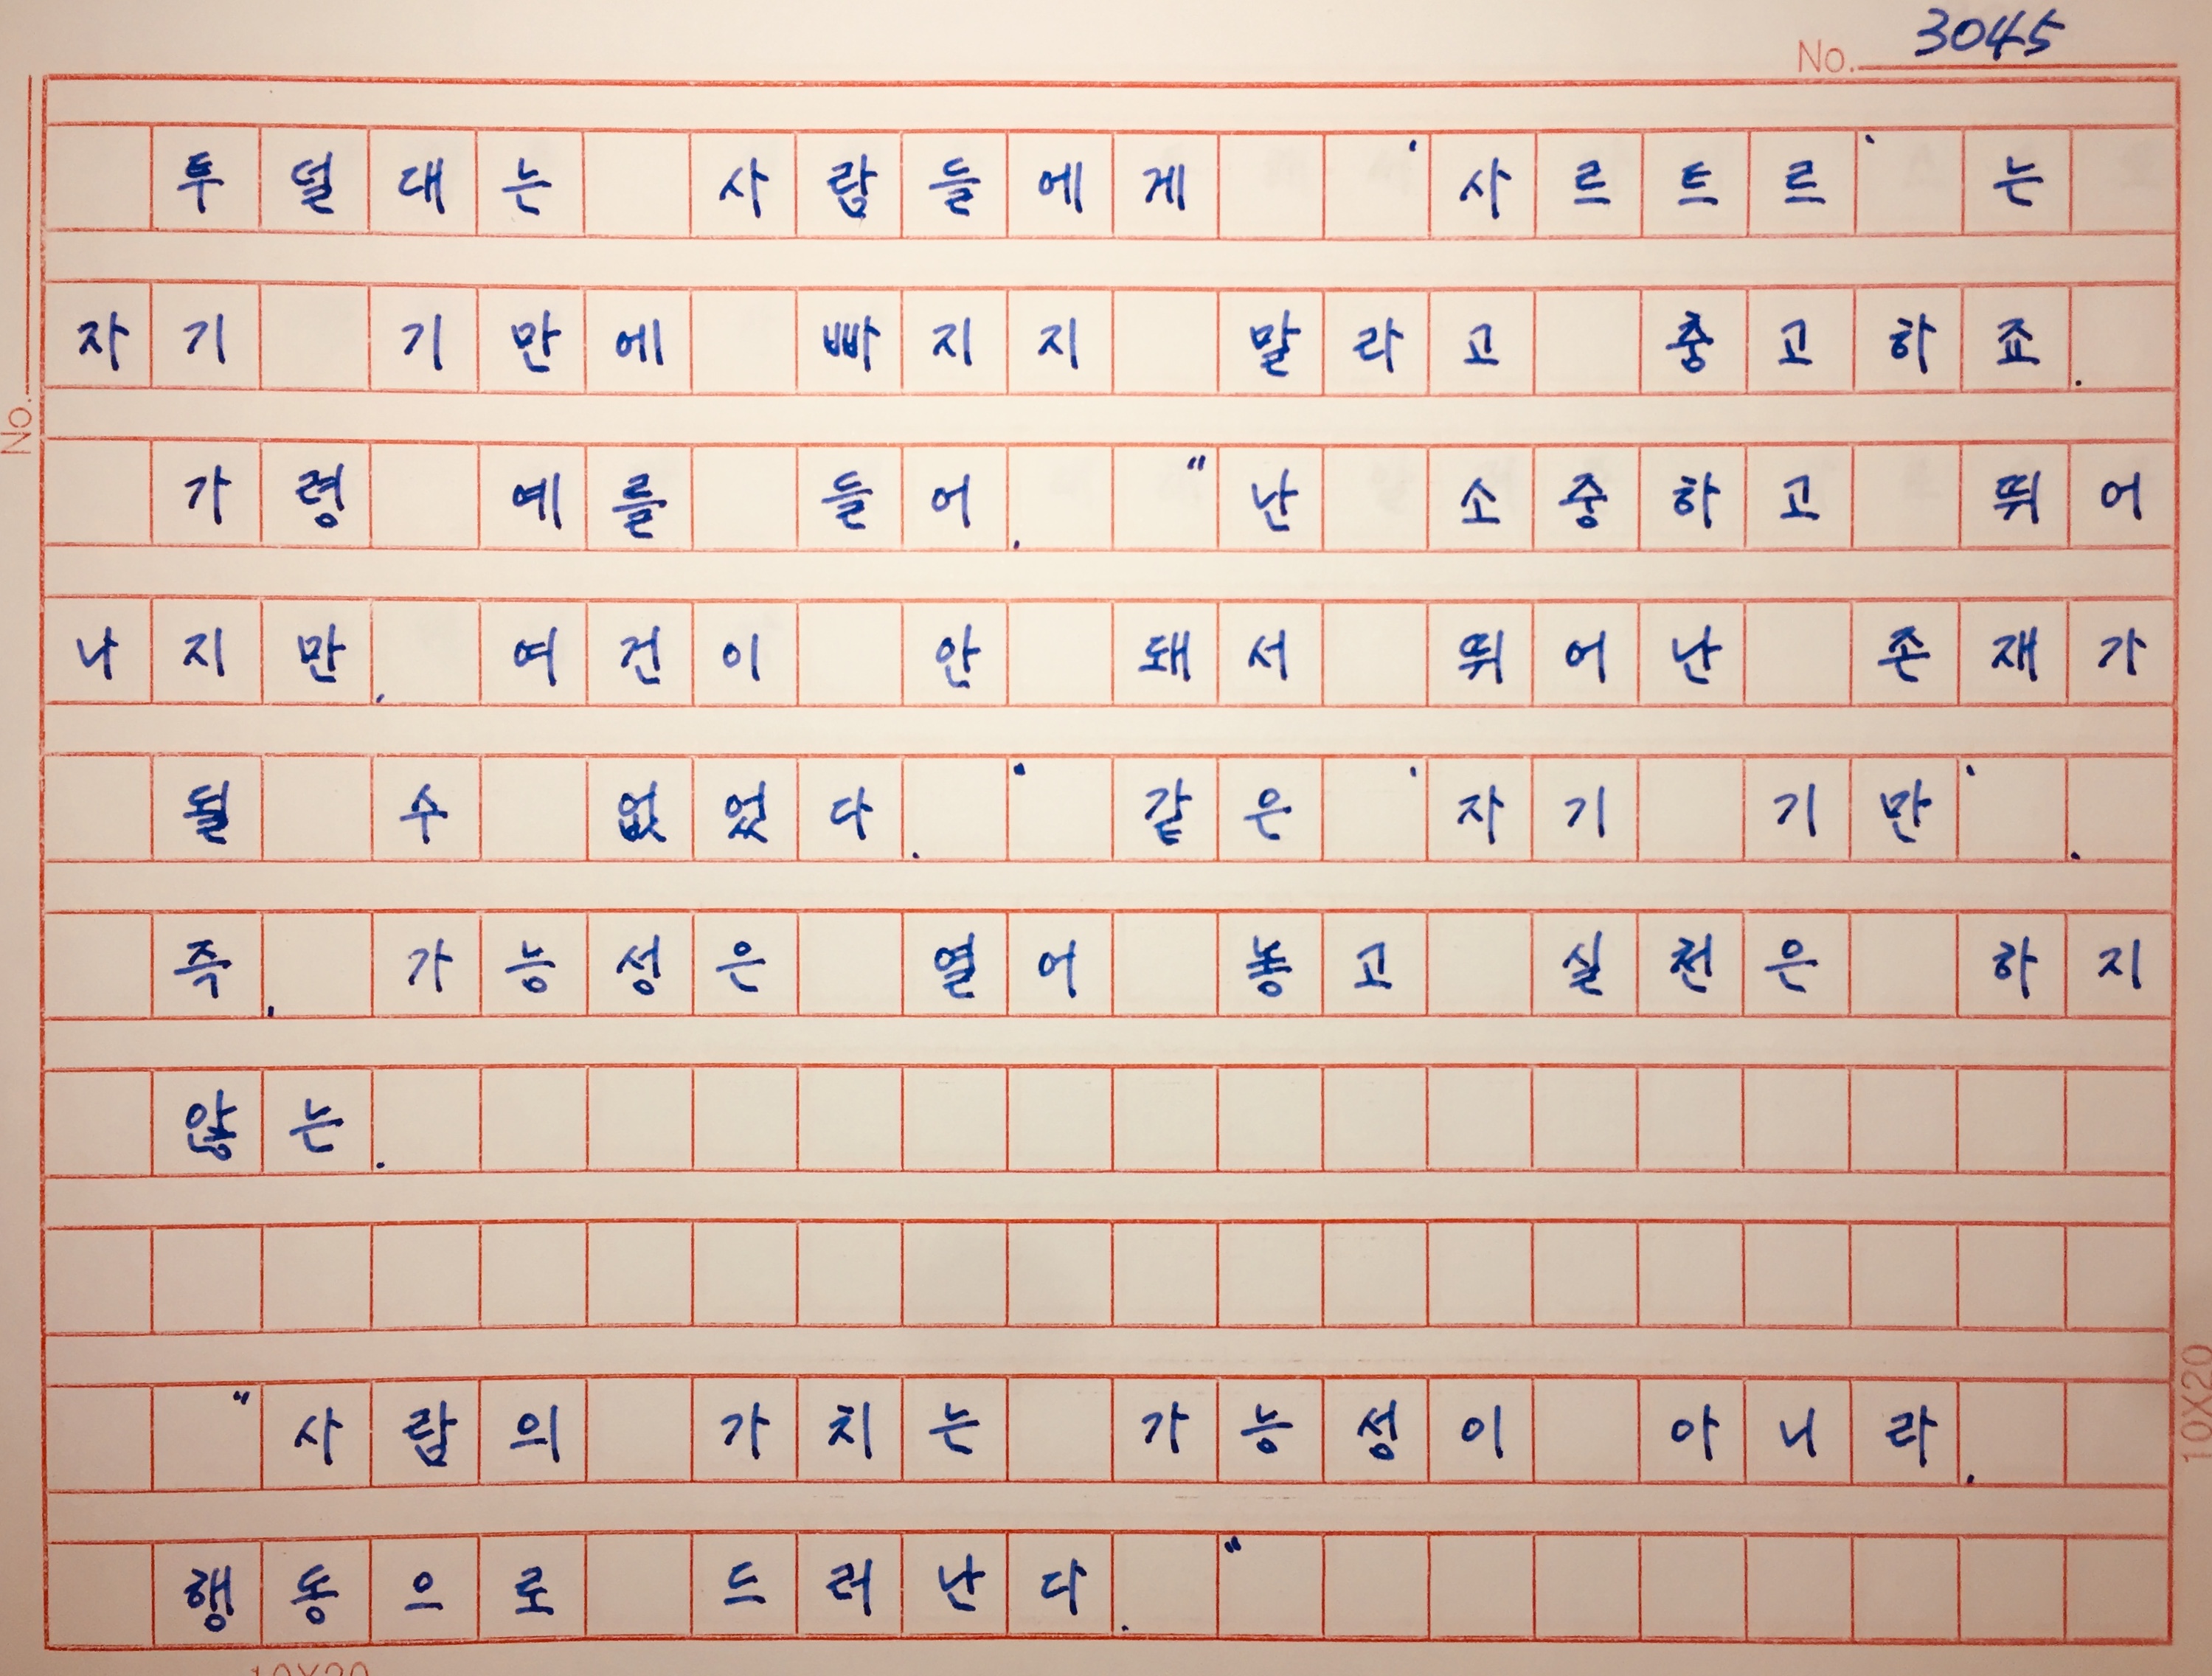 No. 3045
투덜대는 사람들에게 '사르트르'는
자기 기만에 빠지지 말라고 충고하죠.
No.
가령 예를 들어, "난 소중하고 뛰어
나지만, 여건이 안 돼서 뛰어난 존재가
될 수 없었다." 같은 '자기 기만'.
즉, 가능성은 열어 놓고 실천은 하지
않는.
"사람의 가치는 가능성이 아니라,
10X20
행동으로 드러난다."
10X20